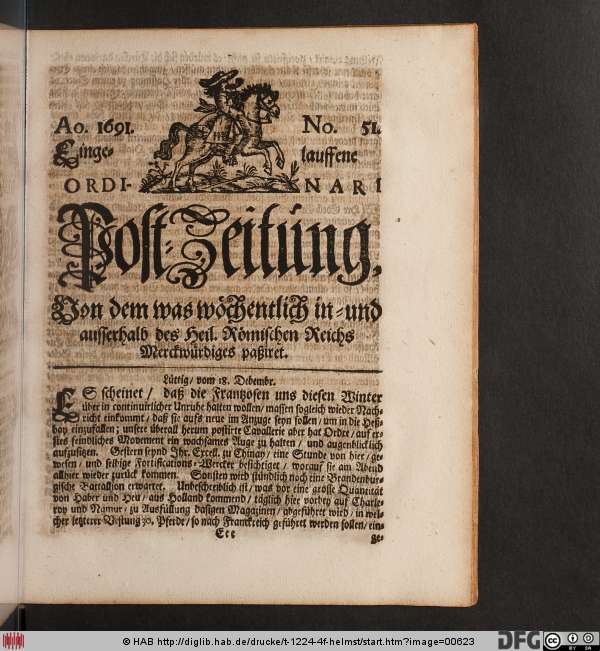 Ao. 1691. No. 51.
Einge- lauffene
ORDI- NARI
Post-Zeitung,
Von dem was wöchentlich in- und
ausserhalb des Heil. Römischen Reichs
Merckwürdiges paßiret.
Lüttig / vom 18. Decembr.
ES scheinet / daß die Frantzosen uns diesen Winter
über in continuirlicher Unruhe halten wollen / massen sogleich wieder Nach-
richt einkommt / daß sie aufs neue im Anzuge seyn sollen / um in die Heß-
bay einzufallen; unsere überall herum postirte Cavallerie aber hat Ordre / auf er-
stes feindliches Movement ein wachsames Auge zu halten / und augenblicklich
aufzusitzen. Gestern seynd Ihr. Excell. zu Chinay / eine Stunde von hier / ge-
wesen / und selbige Fortifications-Wercker besichtiget / worauf sie am Abend
allhier wieder zurück kommen. Sonsten wird stündlich noch eine Brandenbur-
gische Battallion erwartet. Unbeschreiblich ist / was vor eine grosse Quantität
von Haber und Heu / aus Holland kommend / täglich hier vorbey auf Charle-
roy und Namur / zu Ausfüllung dasigen Magazinen / abgeführet wird / in wel-
cher letzterer Vestung 30. Pferde / so nach Franckreich geführet werden sollen / ein-
Eee ge-
© HAB http://diglib.hab.de/drucke/t-1224-4f-helmst/start.htm?image=00623
DFG
CC BY SA